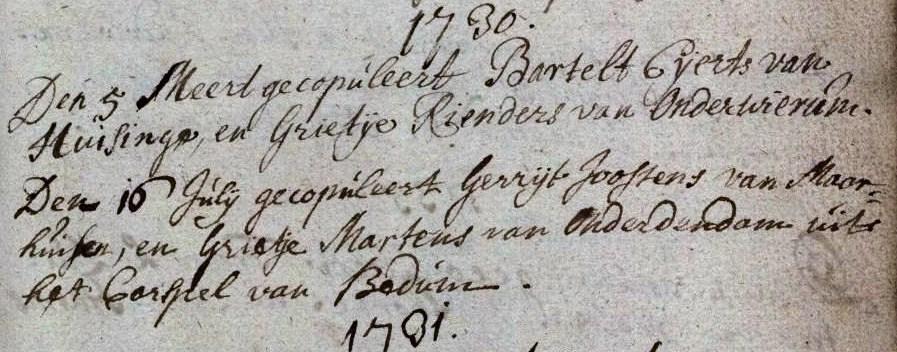 1730.
Den 5 Meert gecopuleert Bartelt Eyerts van
Huisinge, en Grietje Rienders van Onderwierum.
Den 16 July gecopuleert Gerrijt Joostens van Maar=
huisen, en Grietje Martens van Onderdendam uit
het Corspel van Bedum.
1731.